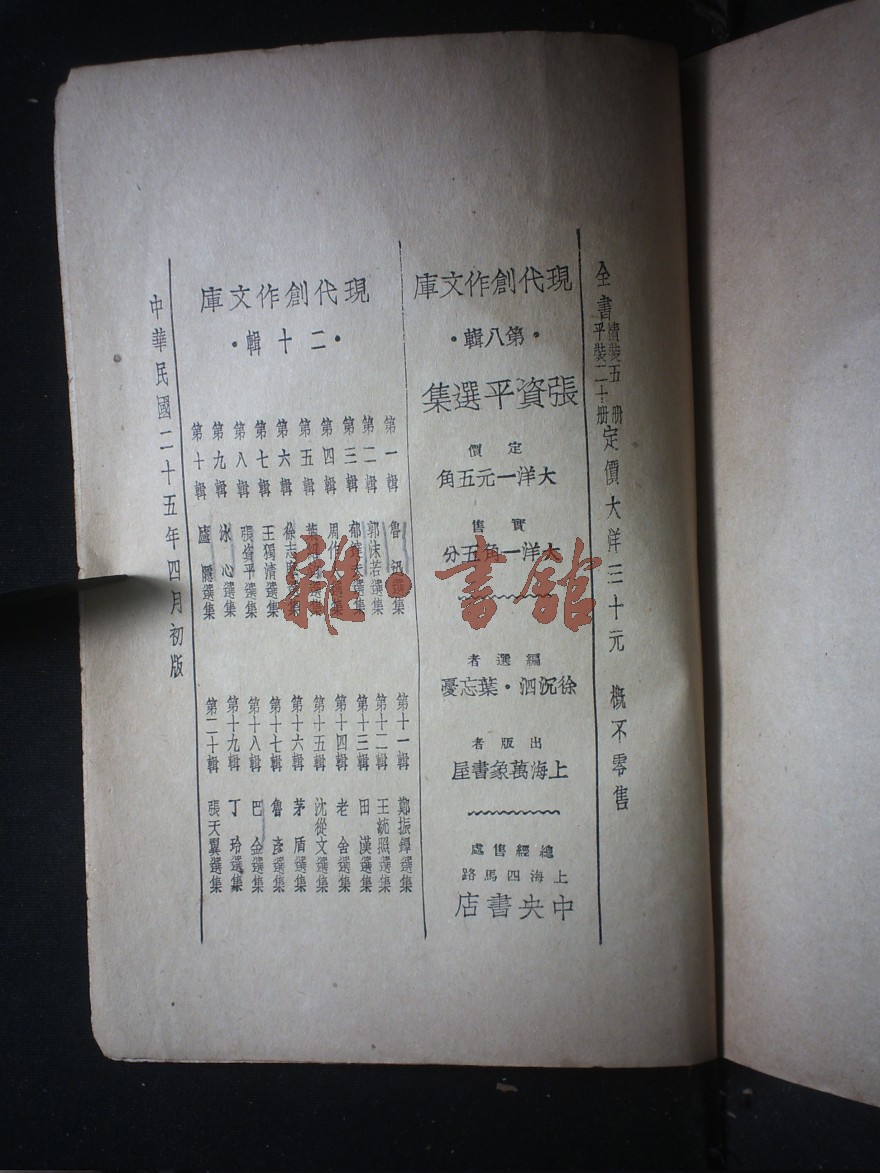 全書精裝五册平裝二十册定價大洋三十元 概不零售
現代創作文庫
·第八輯·
張資平選集
定價
大洋一元五角
實售
大洋一角五分
編選者
徐沉泗·葉忘憂
出版者
上海萬象書屋
總經售處
上海四馬路
中央書店
現代創作文庫
·二十輯·
第一輯 魯迅選集
第二輯 郭沫若選集
第三輯 郁達夫選集
第四輯 周作人選集
第五輯 葉紹鈞選集
第六輯 徐志摩選集
第七輯 王獨清選集
第八輯 張資平選集
第九輯 冰心選集
第十輯 廬隱選集
第十一輯 鄭振鐸選集
第十二輯 王統照選集
第十三輯 田漢選集
第十四輯 老舍選集
第十五輯 沈從文選集
第十六輯 茅盾選集
第十七輯 魯彥選集
第十八輯 巴金選集
第十九輯 丁玲選集
第二十輯 張天翼選集
中華民國二十五年四月初版
雜·書館